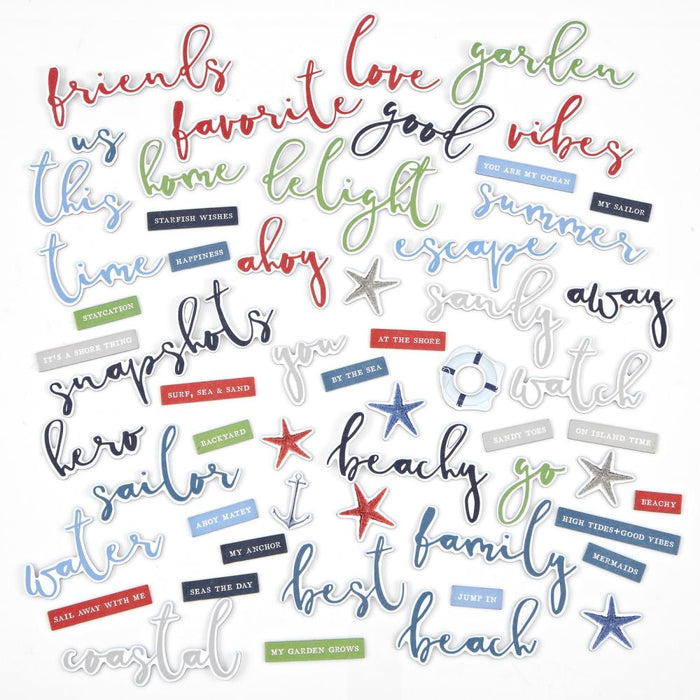 friends
love
garden
favorite
good
vibes
us
this
home
delight
YOU ARE MY OCEAN
MY SAILOR
STARFISH WISHES
summer
time
HAPPINESS
ahoy
escape
sandy
away
STAYCATION
IT'S A SHORE THING
snapshots
you
AT THE SHORE
BY THE SEA
watch
SURF, SEA & SAND
hero
BACKYARD
beachy
SANDY TOES
ON ISLAND TIME
sailor
go
BEACHY
AHOY MATEY
water
MY ANCHOR
family
HIGH TIDES+GOOD VIBES
MERMAIDS
SEAS THE DAY
best
JUMP IN
SAIL AWAY WITH ME
beach
coastal
MY GARDEN GROWS